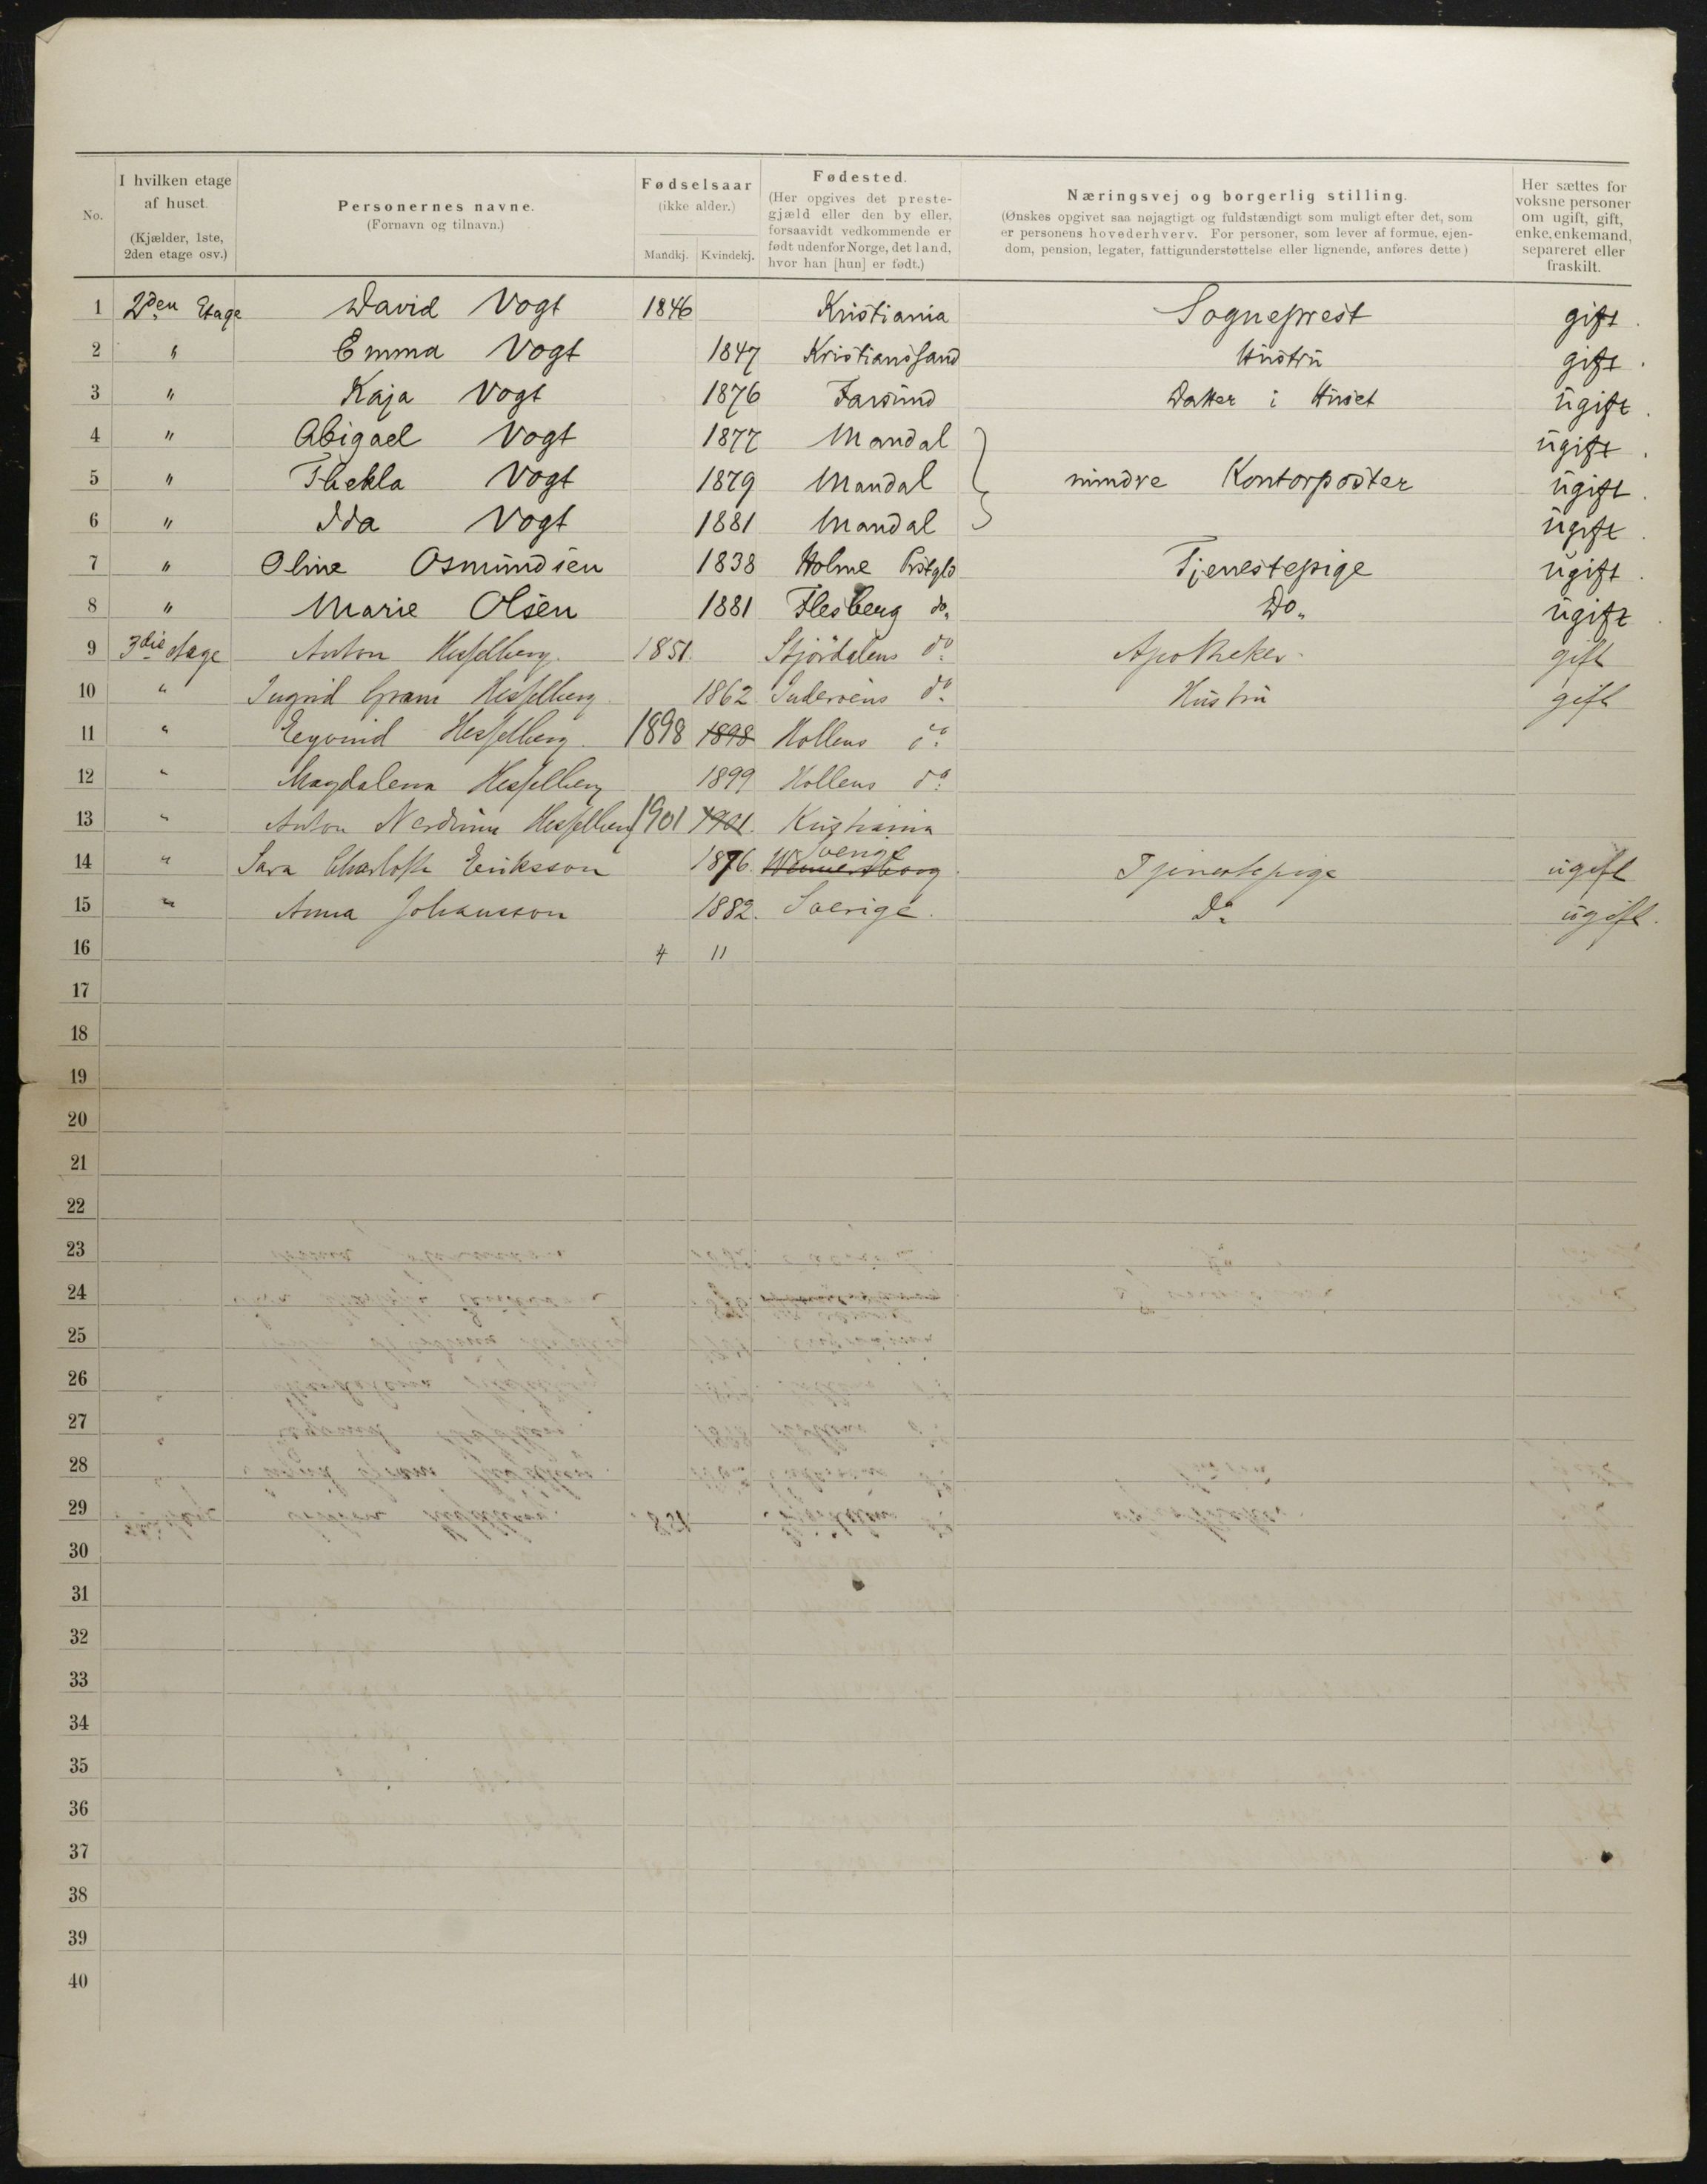 No. | I hvilken etage af huset. (Kjælder, 1ste, 2den etage osv.) | Personernes navne. (Fornavn og tilnavn.) | Fødselsaar (ikke alder.) Mandkj. | Kvindekj. | Fødested. (Her opgives det prestegjæld eller den by eller, forsaavidt vedkommende er født udenfor Norge, det land, hvor han [hun] er født.) | Næringsvej og borgerlig stilling. (Ønskes opgivet saa nøjagtigt og fuldstændigt som muligt efter det, som er personens hovederhverv. For personer, som lever af formue, ejendom, pension, legater, fattigunderstøttelse eller lignende, anføres dette) | Her sættes for voksne personer om ugift, gift, enke, enkemand, separeret eller fraskilt.
1 2den Etage David Vogt 1846 Kristiania Sogneprest gift.
2 " Emma Vogt 1847 Kristianssand Hustru gift.
3 " Kaja Vogt 1876 Farsund Datter i Huset ugift.
4 " Abigael Vogt 1877 Mandal ugift.
5 " Thekla Vogt 1879 Mandal } mindre Kontorposter ugift.
6 " Ida Vogt 1881 Mandal ugift.
7 " Oline Osmundsen 1838 Holme Prstgld Tjenestepige ugift.
8 " Marie Olsen 1881 Flesberg do. Do. ugift.
9 3die etage Anton Hesselberg. 1851. Stjördalens do. Apotheker. gift
10 " Ingrid Gram Hesselberg. 1862. Inderöens do. Hustru gift
11 " Eyvind Hesselberg. 1898 1898 Hollens do.
12 " Magdalena Hesselberg 1899 Hollens do.
13 " Anton Hesselberg 1901 1901. Kristiania
14 " Sara Charlotte Eriksson 1876. Sverige Tjenestepige ugift
15 " Anna Johansson 1882. Sverige. Do. ugift.
16 4 11
17
18
19
20
21
22
23
24
25
26
27
28
29
30
31
32
33
34
35
36
37
38
39
40